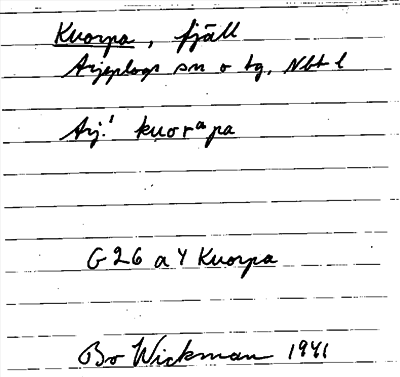 Kuorpa, fjäll
Arjeplogs sn o tg, Nbt l
Arj.' kuorᵃpa
G 26 a 4 Kuorpa
Bo Wickman 1941